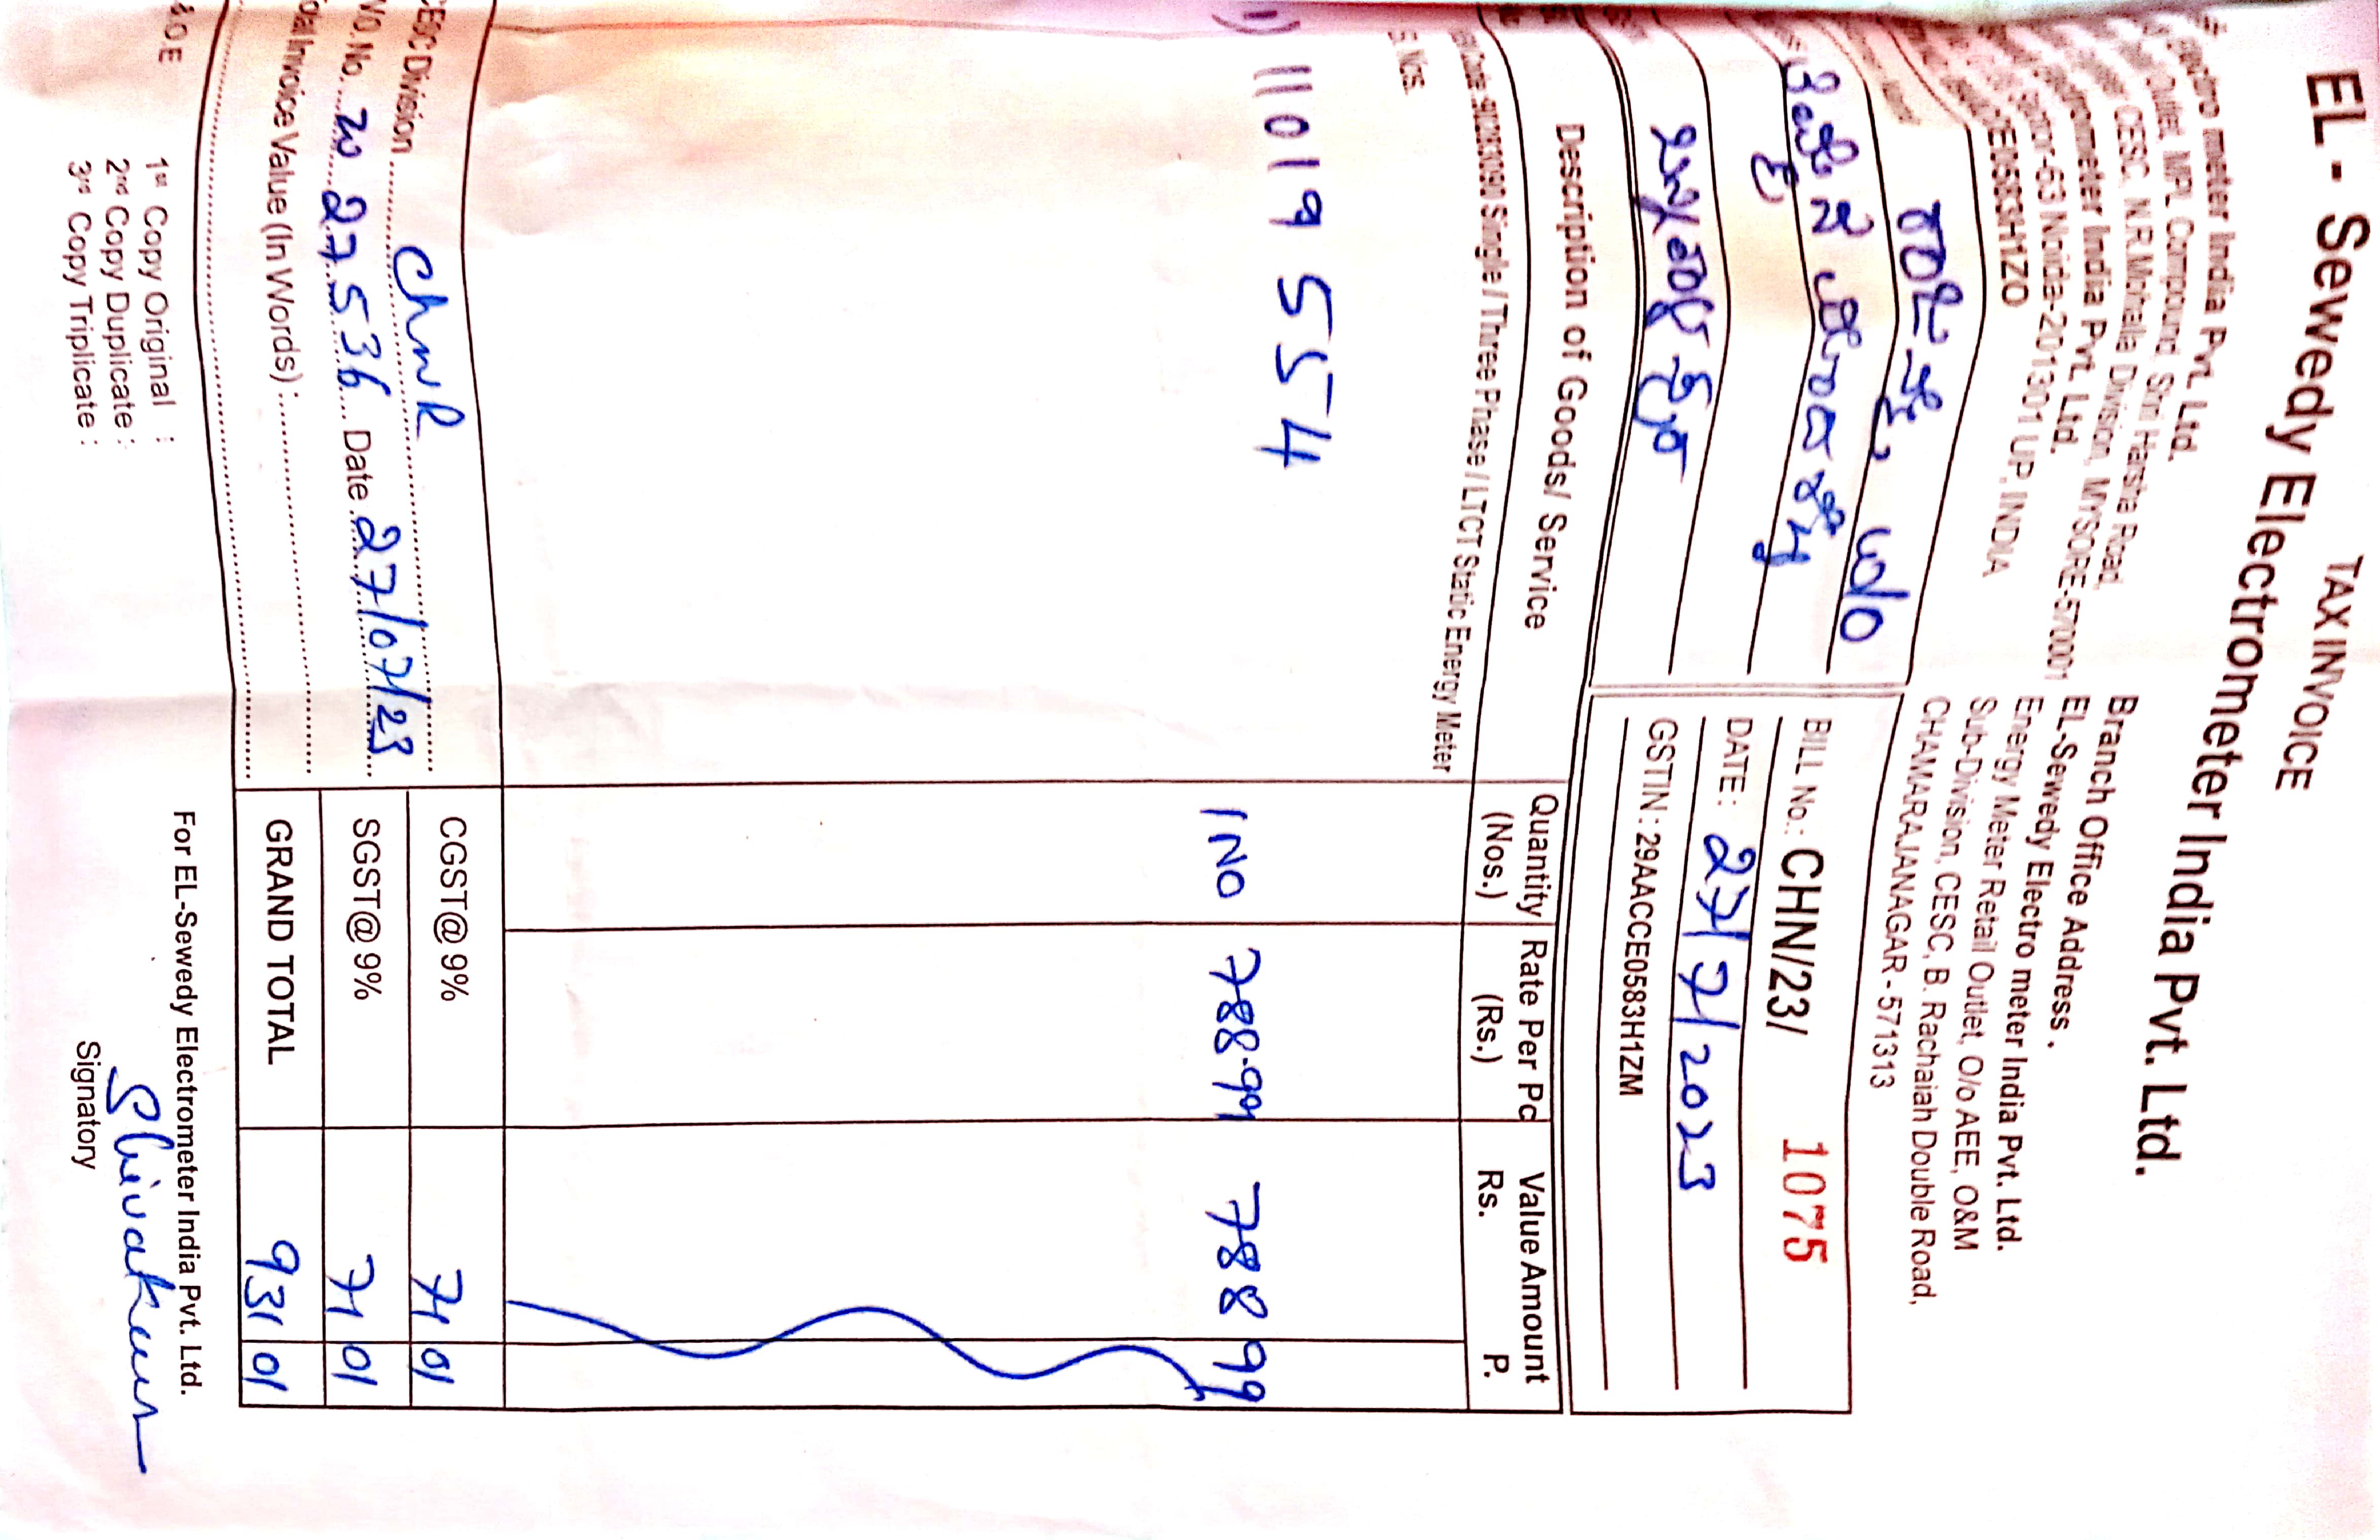 TAX INVOICE
EL - Sewedy Electrometer India Pvt. Ltd.
meter India Pvt. Ltd.
Outlet, MPL Compound, Shri Harsha Road,
CESC, N.R.Mohalla Division, MYSORE-570001
meter India Pvt. Ltd.
-63 Noida-201301 UP. INDIA
Branch Office Address .
EL-Sewedy Electro meter India Pvt. Ltd.
Energy Meter Retail Outlet, O/o AEE, O&M
Sub-Division, CESC, B. Rachaiah Double Road,
CHAMARAJANAGAR - 571313
W/O
BILL No.: CHN/23/ 1075
DATE : 27/7/2023
GSTIN : 29AACCE0583H1ZM
Description of Goods/ Service
Quantity (Nos.)
Rate Per Pc (Rs.)
Value Amount
Rs. P.
Single / Three Phase / LTCT Static Energy Meter
S. Nos.
1) 11019554 1 NO 788.99 788 99
CESC Division Chnr
CGST@9% 71 01
W.O. No. 27536 Date 27/07/23
SGST@9% 71 01
Total Invoice Value (In Words) :
GRAND TOTAL 931 01
&OE
1st Copy Original :
2nd Copy Duplicate :
3rd Copy Triplicate :
For EL-Sewedy Electrometer India Pvt. Ltd.
Signatory